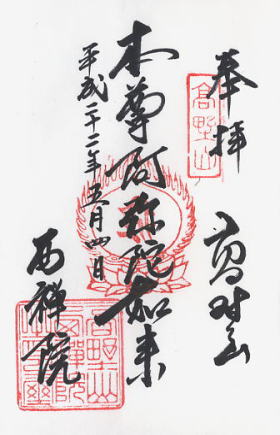 奉拝
高野山
高野山
本尊阿弥陀如来
平成二十二年五月四日
西禅院